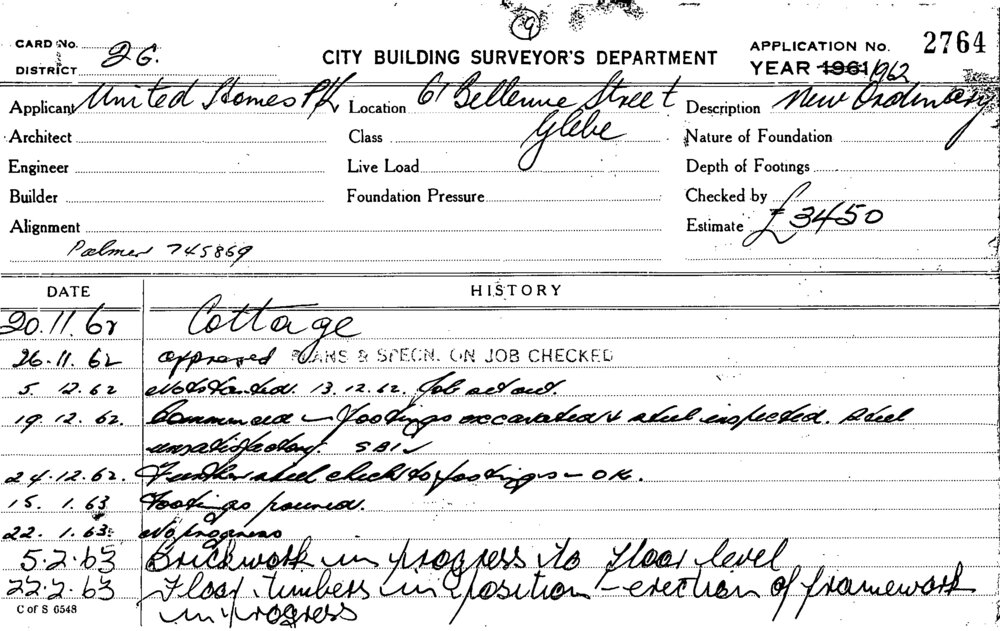 9
CARD No. 2G.
DISTRICT
CITY BUILDING SURVEYOR'S DEPARTMENT
APPLICATION No. 2764
YEAR 1961 1962
Applicant United Homes P/L Location 61 Bellevue Street Description New Ordinary
Glebe
Architect Class Nature of Foundation
Engineer Live Load Depth of Footings
Builder Foundation Pressure Checked by
Alignment Estimate £3450
Palmer 745869
DATE HISTORY
20.11.62 Cottage
26.11.62 approved PLANS & SPECN. ON JOB CHECKED
5.12.62 Not started. 13.12.62. Job set out.
19.12.62. Commenced – footings excavated & steel inspected. Steel
unsatisfactory.
24.12.62. Further steel check to footings – OK.
15.1.63 Footings poured.
22.1.63. No progress
5.2.63 Brickwork in progress to floor level
22.2.63 Floor timbers in position – erection of framework
in progress
C of S 6548